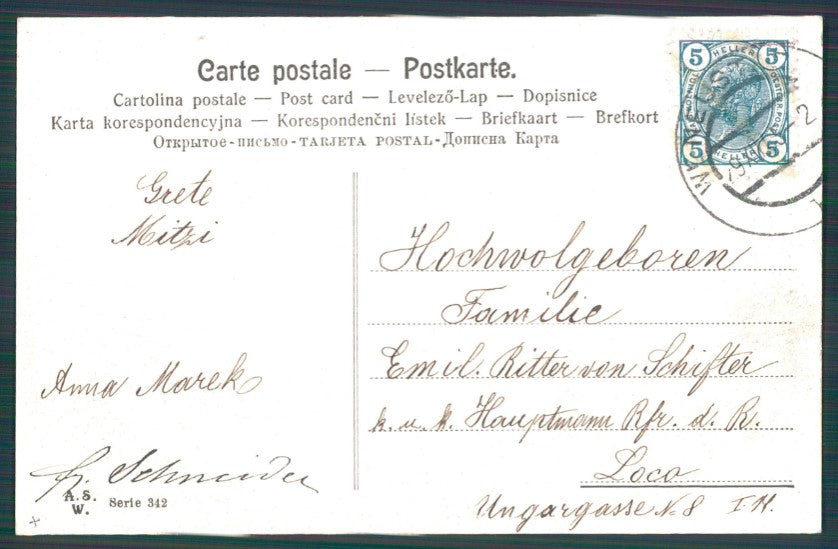 Carte postale — Postkarte.
Cartolina postale — Post card — Levelező-Lap — Dopisnice
Karta korespondencyjna — Korespondenční lístek — Briefkaart — Brefkort
Открытое-письмо-TARJETA POSTAL-Дописна Карта
5 HELLER 5
5 HELLER 5
Grete
Mitzi
Anna Marek
Schneider
A.S.
W.
Serie 342
Hochwolgeboren
Familie
Emil. Ritter von Schifter
k. u. k. Hauptmann Rfr. d. R.
Loco
Ungargasse N. 8